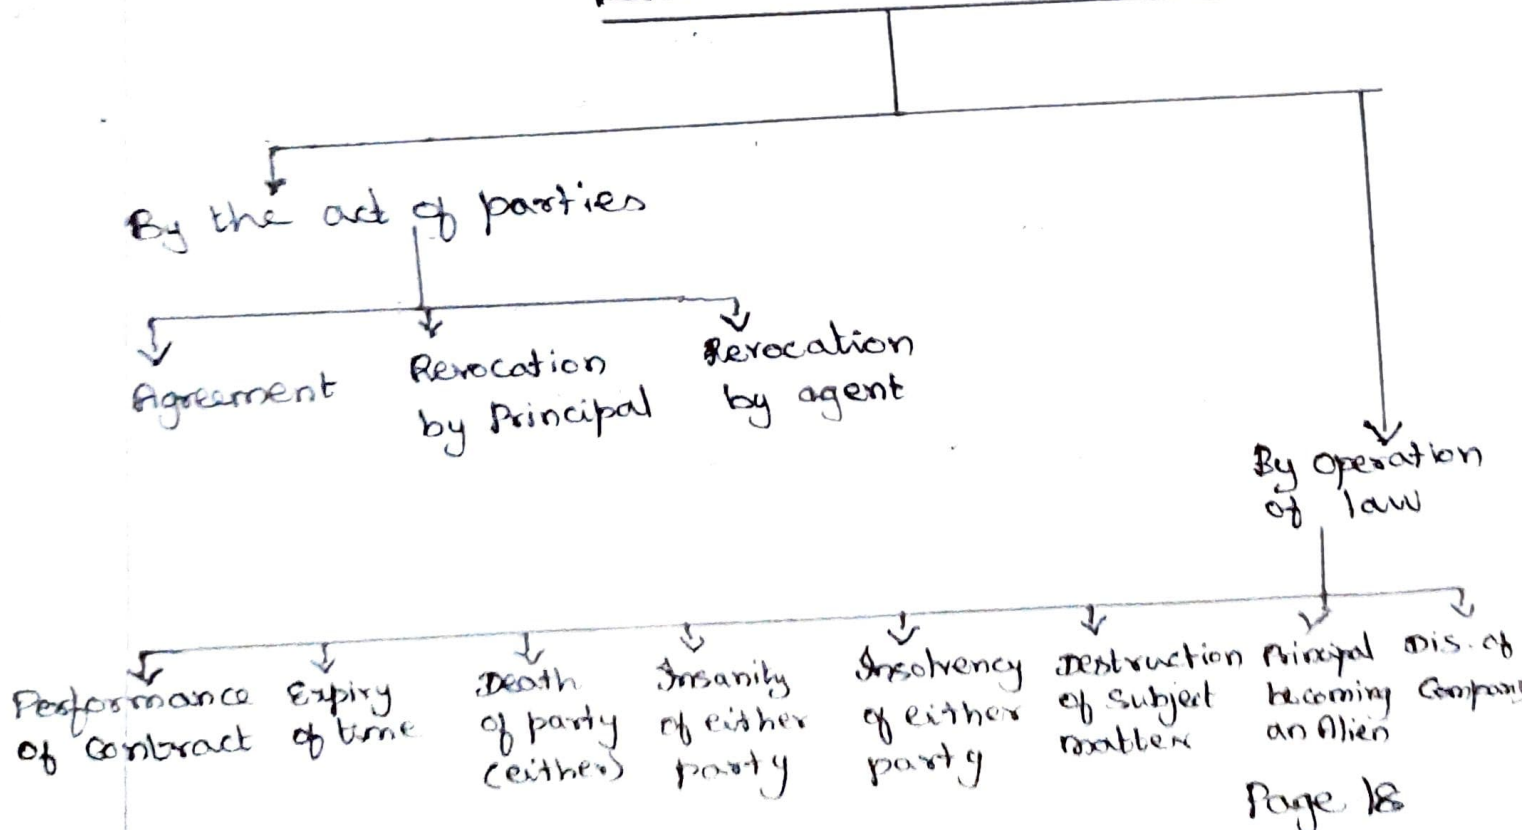 By the act of parties
Agreement
Revocation
by Principal
Revocation
by agent
By Operation
of law
Performance
of contract
Expiry
of time
Death
of party
(either)
Insanity
of either
party
Insolvency
of either
party
Destruction
of Subject
matter
Principal
becoming
an Alien
Dis. of
Company
Page 18